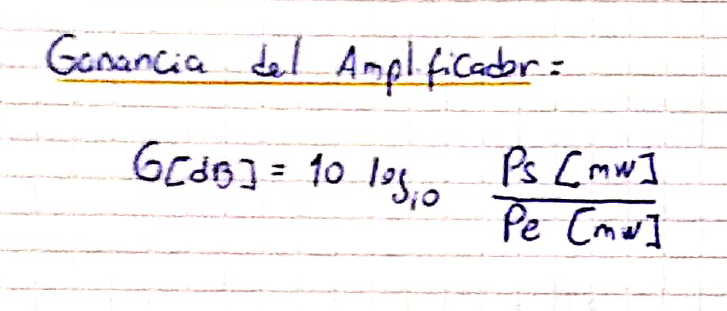 Ganancia del Amplificador =
G[dB] = 10 log₁₀ Ps [mW]
Pe [mW]